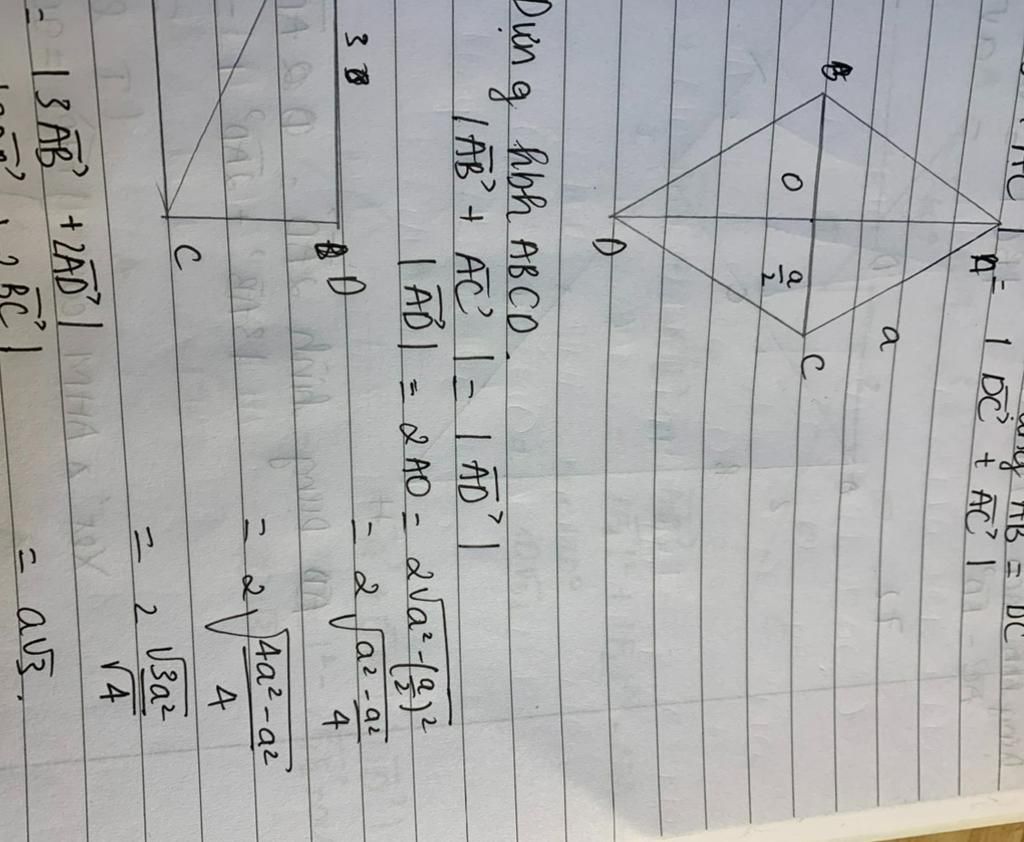 AB = DC
AC | = | DC→ + AC→ |
A
a
B
O
a/2
C
D
Dựng hbh ABCD.
| AB→ + AC→ | = | AD→ |
| AD→ | = 2AO = 2√(a² - (a/2)²)
= 2√(a² - a²/4)
= 2√((4a² - a²)/4)
= 2 √3a²/√4
= a√3.
3
D
C
= | 3AB→ + 2AD→ |
2 BC→ |